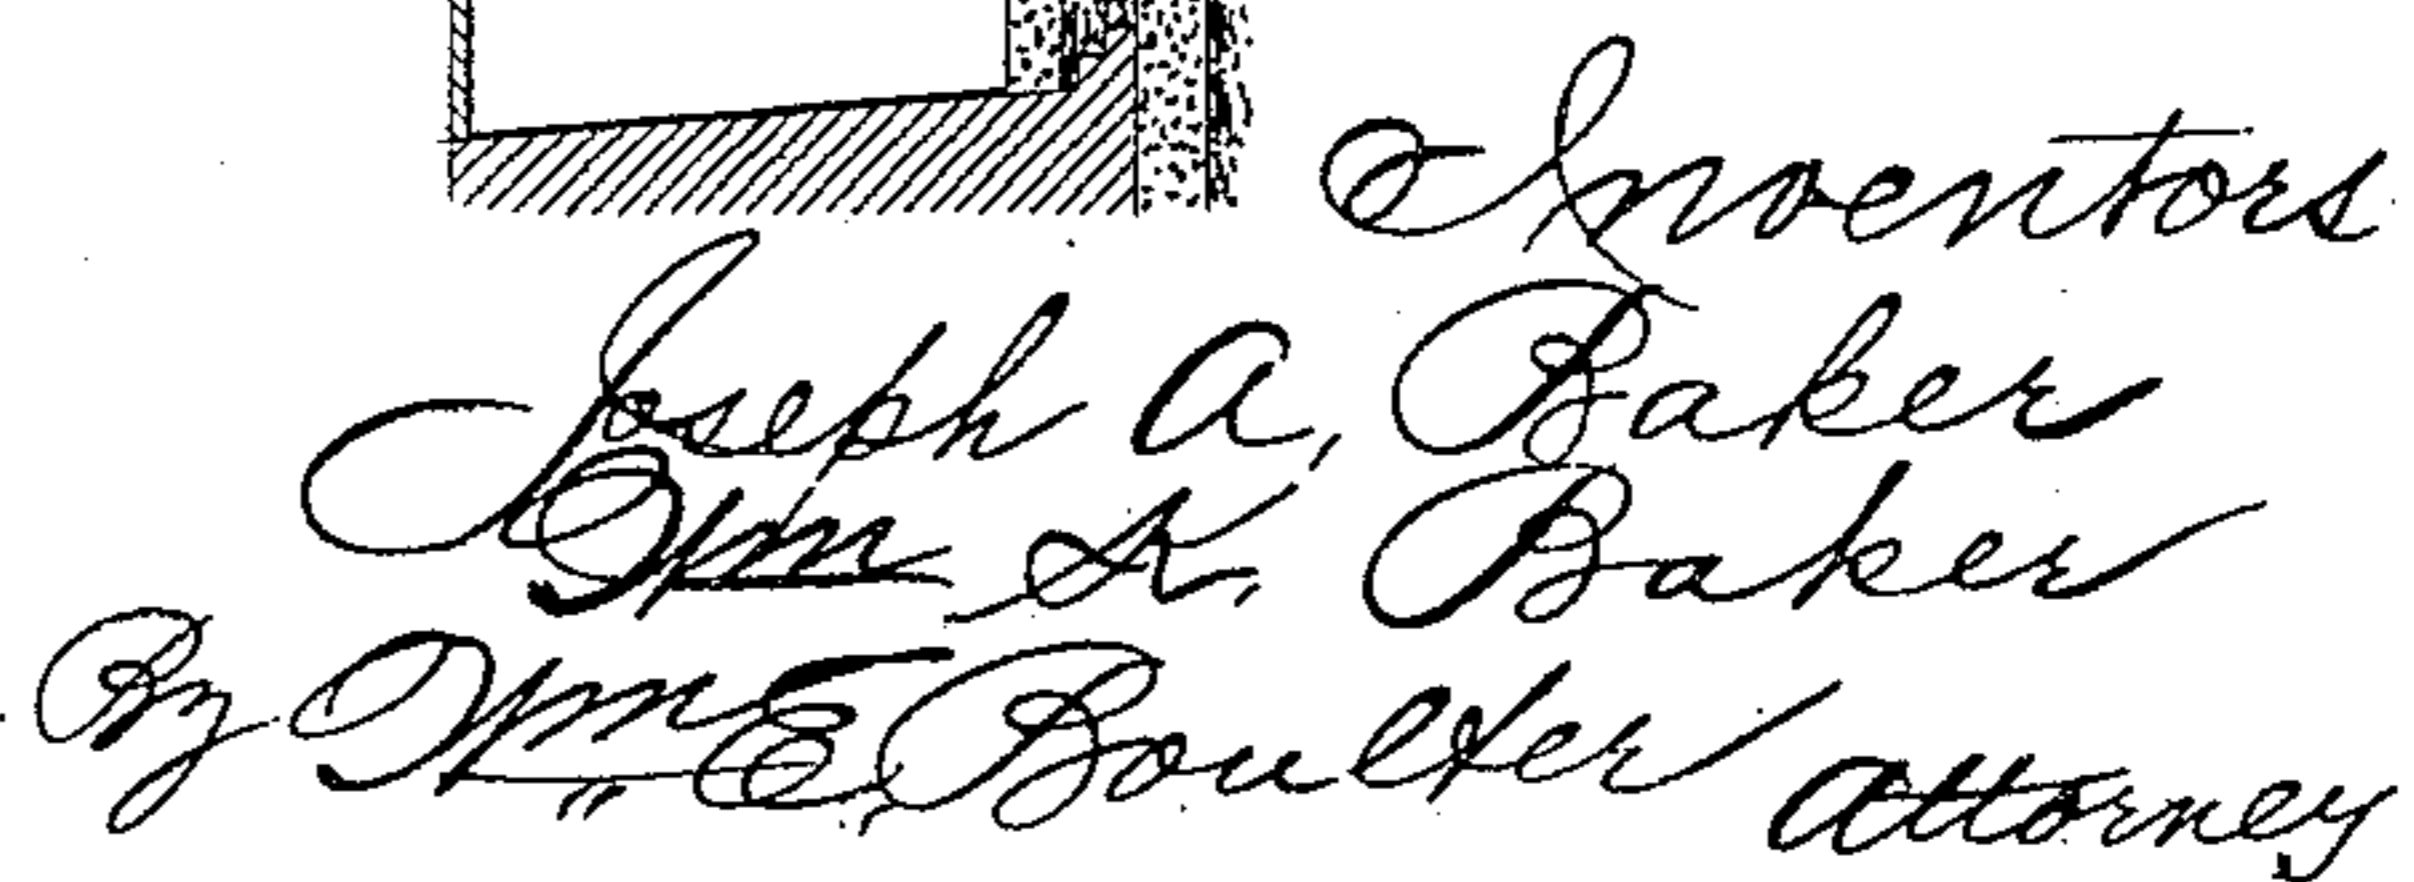 Inventors
Joseph A. Baker
Wm K. Baker
By Wm E. Boulter
Attorney